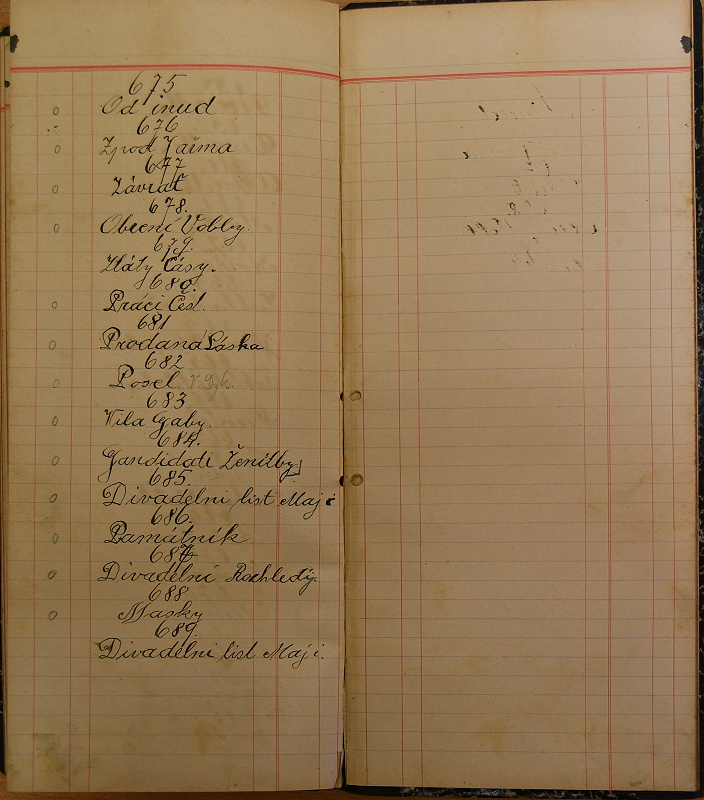 675
Od jinud
676
Zpod Jařma
677
Závrať
678.
Obecní Volby.
679.
Zláty Časy.
680.
Práci Čest.
681
Prodaná Láska
682
Posel. V. Dyk.
683
Vila Gaby.
684.
Gandidati Ženitby
685.
Divadelni list Maj i
686.
Památník
687
Divadelní Rozhledy.
688
Masky
689.
Divadelni list Maj i.